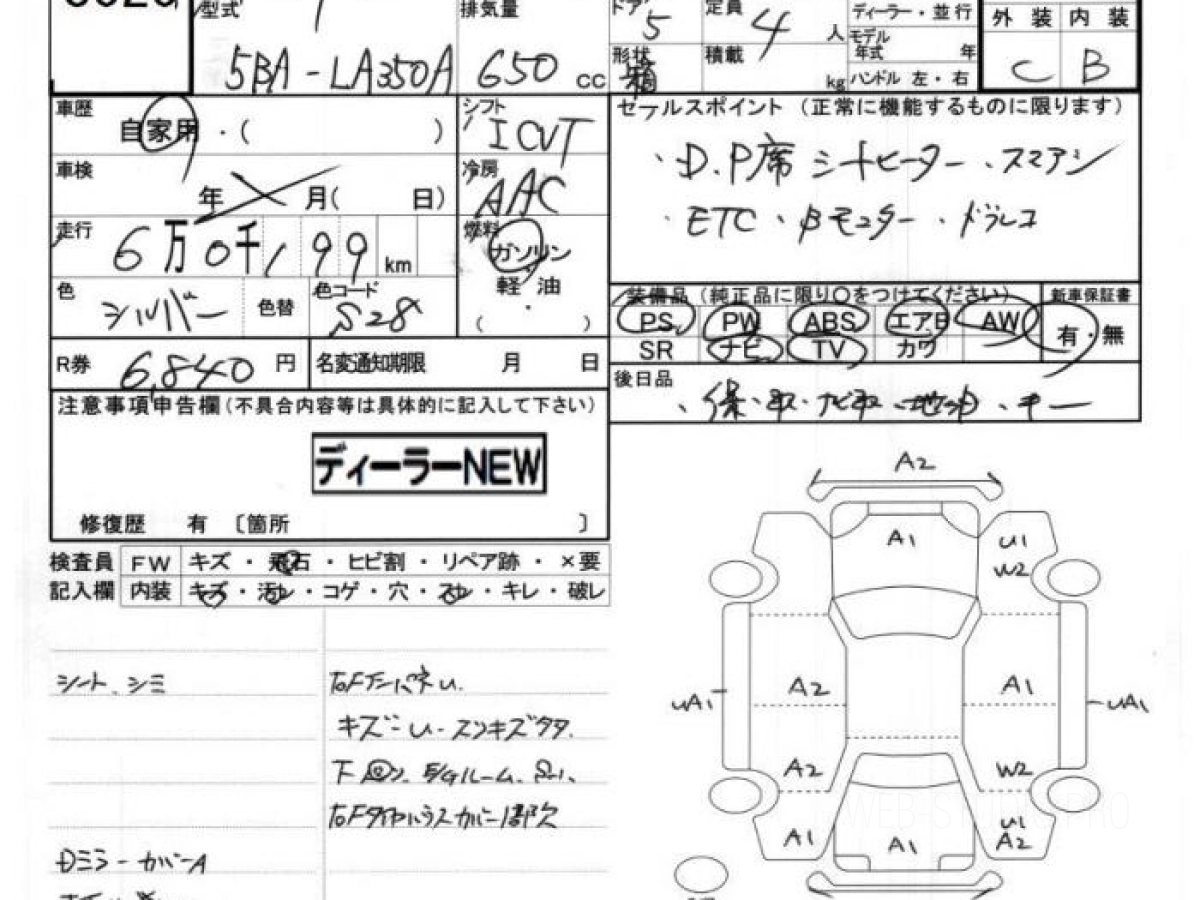 型式 排気量 ドア 5 定員 4 人 ディーラー・並行 外装 内装
モデル年式 年
5BA-LA350A 650 cc 形状 箱 積載 kg ハンドル 左・右 C B
車歴 自家用・( ) シフト ICVT セールスポイント (正常に機能するものに限ります)
、D.P席 シートヒーター、スマアシ
車検 年 月( 日) 冷房 AAC
、ETC、Bモニター、ドラレコ
走行 6万0千199 km 燃料 ガソリン・軽油
( )
色 シルバー 色替 色コード S28
装備品 (純正品に限り○をつけてください) 新車保証書
PS PW ABS エアB AW 有・無
SR ナビ TV カワ
R券 6,840 円 名変通知期限 月 日
後日品 、保・取・ナビ取、地セット、キー
注意事項申告欄 (不具合内容等は具体的に記入して下さい)
ディーラーNEW
修復歴 有 〔箇所 〕
検査員 FW キズ・飛石・ヒビ割・リペア跡・×要
記入欄 内装 キズ・汚レ・コゲ・穴・スレ・キレ・破レ
シート、シミ
Dミラーカバー A
右Fフェンダー
キズ
下
右Fタイヤハウスカバー1部欠
A2
A1
U1
W2
A2
A1
UA1
UA1
A2
W2
A1
A1
U1
A2